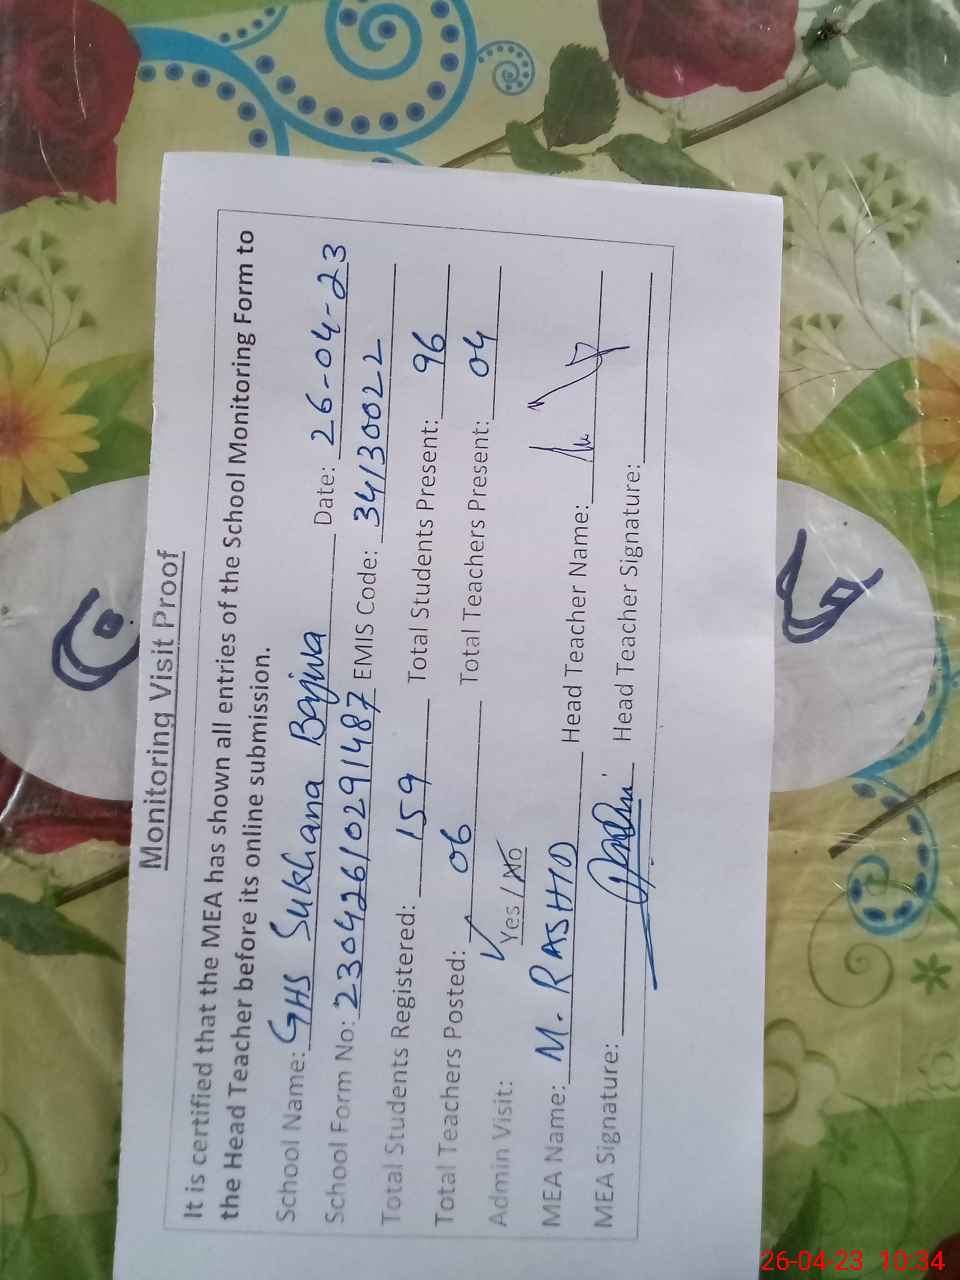 Monitoring Visit Proof
It is certified that the MEA has shown all entries of the School Monitoring Form to
the Head Teacher before its online submission.
School Name: GHS Sukhana Bajwa Date: 26-04-23
School Form No: 23042610291487 EMIS Code: 34130022
Total Students Registered: 159 Total Students Present: 96
Total Teachers Posted: 06 Total Teachers Present: 04
Admin Visit: Yes / No
MEA Name: M. RASHID Head Teacher Name:
MEA Signature: Head Teacher Signature:
26-04-23 10:34